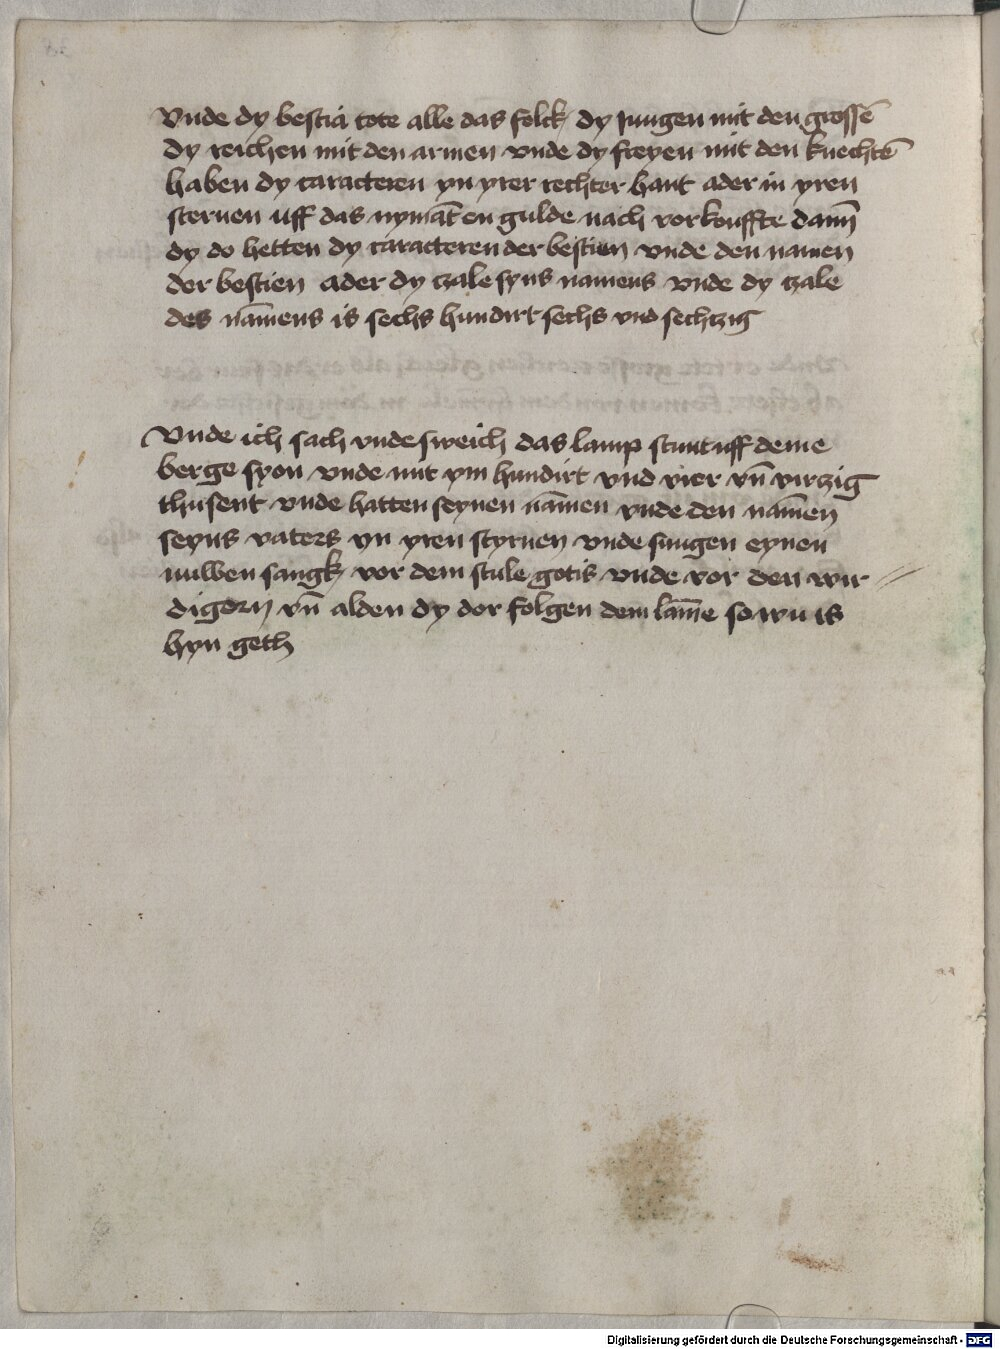 Vnde dy bestia tote alle das folck dy jungen mit den grossē
dy reichen mit den armen vnde dy freyen mit den knechtē
haben dy caracteren yn yrer rechter hant ader in yren
sternen uff das nymāt en gulde nach vorkouffte dann̄
dy do hetten dy caracteren der bestien vnde den namen
der bestien ader dy czale syns namens vnde dy czale
des nāmens is sechs hundirt sechs vnd sechtzig
Vnde ich sach vnde sweich das lamp stunt uff deme
berge syon vnde mit ym hundirt vnd vier vn̄ virczig
thusent vnde hatten seynen nāmen vnde den nāmen
seyns vaters yn yren styrnen vnde sungen eynen
nuwen sangk vor dem stule gotis vnde vor den wir
digern vn̄ alden dy dor folgen dem lām̄e so wu is
hyn geth
Digitalisierung gefördert durch die Deutsche Forschungsgemeinschaft - DFG